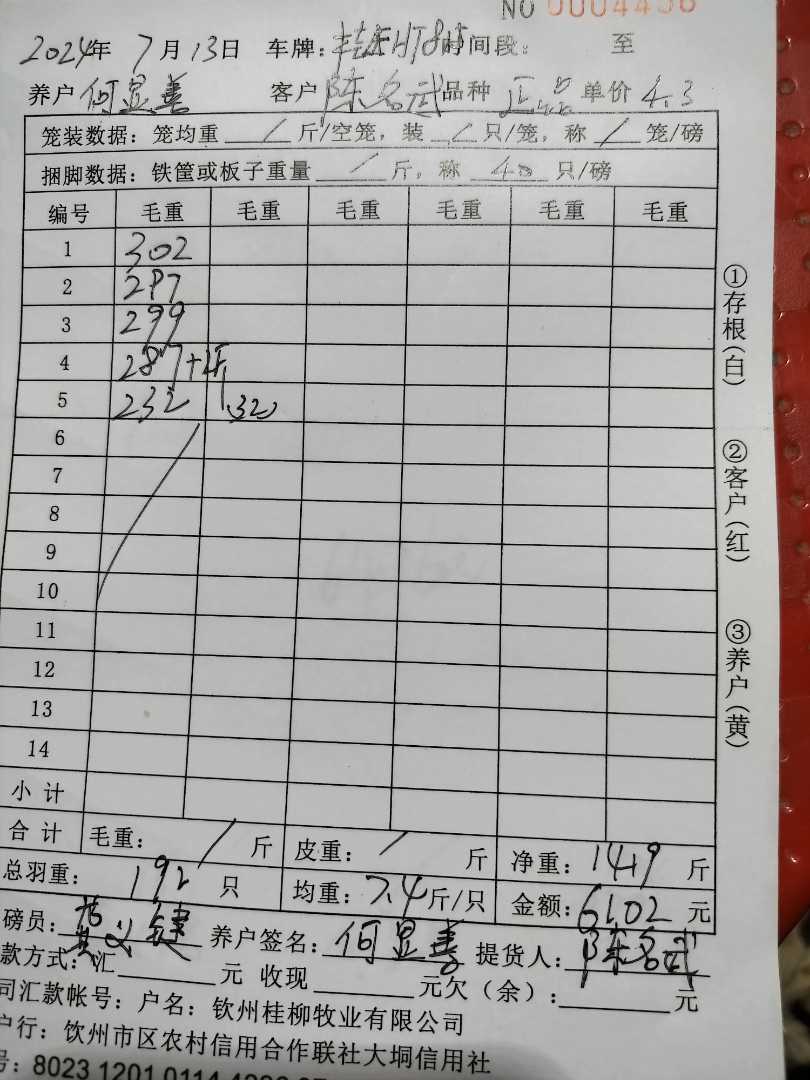 NO 0004456
2024年 7月13日 车牌: 时间段: 至
养户 何显善 客户 陈名武 品种 正品 单价 4.3
笼装数据: 笼均重 / 斤/空笼, 装 / 只/笼, 称 / 笼/磅
捆脚数据: 铁筐或板子重量 / 斤, 称 40 只/磅
编号 毛重 毛重 毛重 毛重 毛重 毛重
1 302
2 297
3 299
4 287+
5 232 32
6
7
8
9
10
11
12
13
14
小 计
合 计 毛重: / 斤 皮重: / 斤 净重: 1419 斤
总羽重: 192 只 均重: 7.4 斤/只 金额: 6102 元
磅员: 养户签名: 何显善 提货人: 陈名武
款方式: 汇 元 收现 元欠(余): 元
司汇款帐号: 户名: 钦州桂柳牧业有限公司
户行: 钦州市区农村信用合作联社大垌信用社
号: 8023 1201 0114
①存根(白)
②客户(红)
③养户(黄)